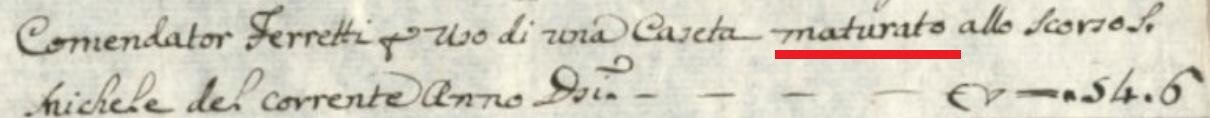 Comendator Ferretti p Uso di una Caseta maturato allo scorso S.
Michele del corrente Anno D 54.6